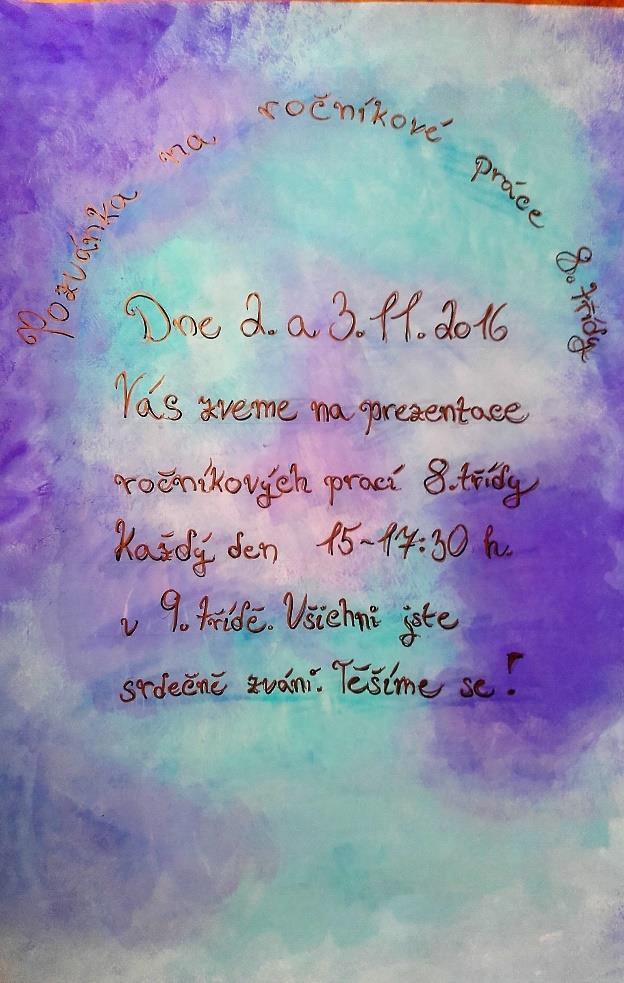 Pozvánka na ročníkové práce 8. třídy
Dne 2. a 3. 11. 2016
Vás zveme na prezentace
ročníkových prací 8. třídy
Každý den 15-17:30 h.
v 9. třídě. Všichni jste
srdečně zváni. Těšíme se!